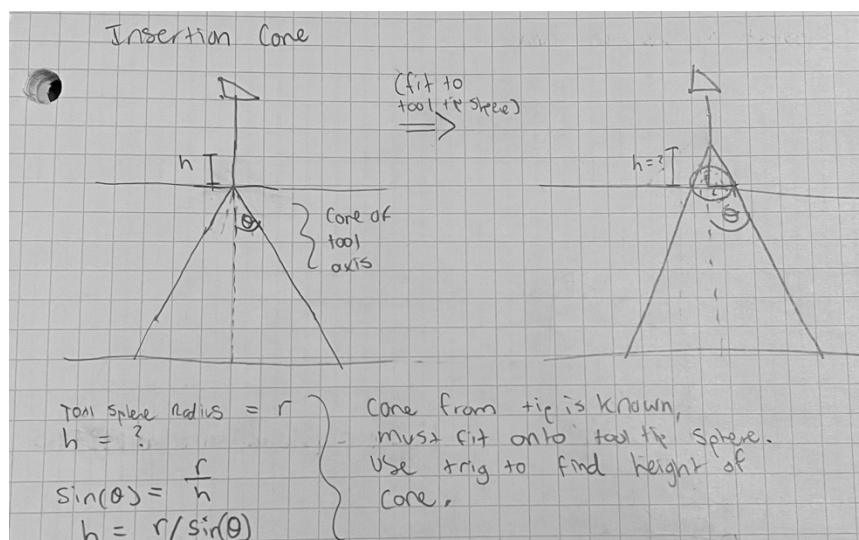 Insertion Cone
(fit to
tool tip sphere)
h
h=?
r
θ
θ
Cone of
tool
axis
Tool Sphere Radius = r
h = ?
sin(θ) = r/h
h = r/sin(θ)
Cone from tip is known,
must fit onto tool tip sphere.
Use trig to find height of
cone.